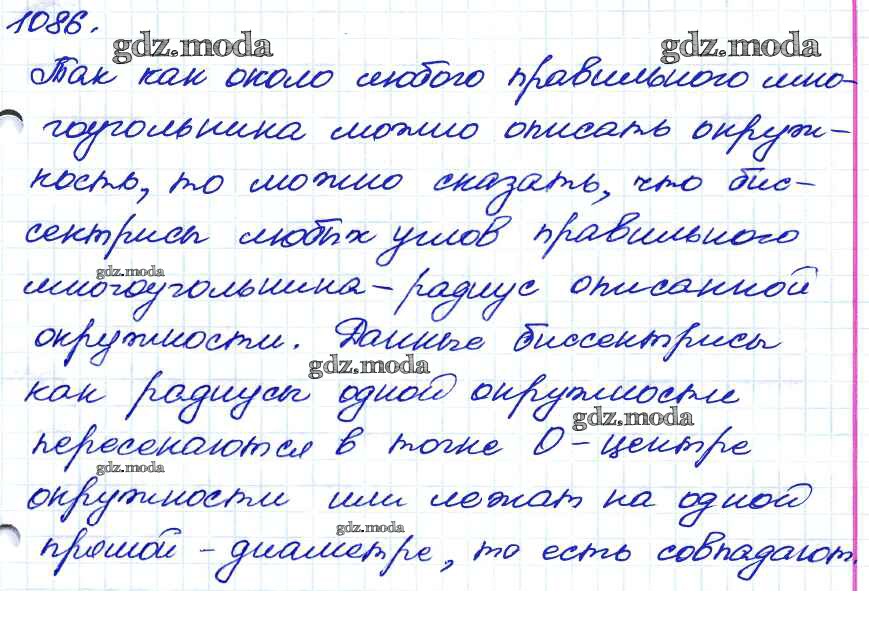 1086.
gdz.moda gdz.moda
Так как около любого правильного мно-
гоугольника можно описать окруж-
ность, то можно сказать, что бис-
сектрисы любых углов правильного
gdz.moda
многоугольника - радиус описанной
окружности. Данные биссектрисы
gdz.moda
как радиусы одной окружности
gdz.moda
пересекаются в точке О - центре
gdz.moda
окружности или лежат на одной
gdz.moda
прямой - диаметре, то есть совпадают.